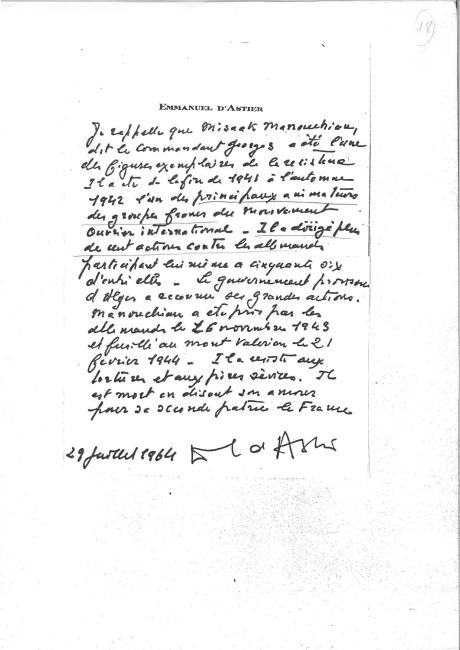 18
EMMANUEL D'ASTIER
Je rappelle que Misaak Manouchian,
dit le commandant Georges a été l'une
des figures exemplaires de la résistance
Il a été de la fin de 1941 à l'automne
1942 l'un des principaux animateurs
des groupes francs du Mouvement
Ouvrier international - Il a dirigé plus
de cent actions contre les allemands
participant lui même a cinquante six
d'entre elles - Le gouvernement provisoire
d'Alger a reconnu ses grandes actions.
Manouchian a été pris par les
allemands le 16 novembre 1943
et fusillé au mont Valérien le 21
février 1944 - Il a resisté aux
tortures et aux pires sévices. Il
est mort en disant son amour
pour sa seconde patrie la France
29 Juillet 1964 E d'Astier